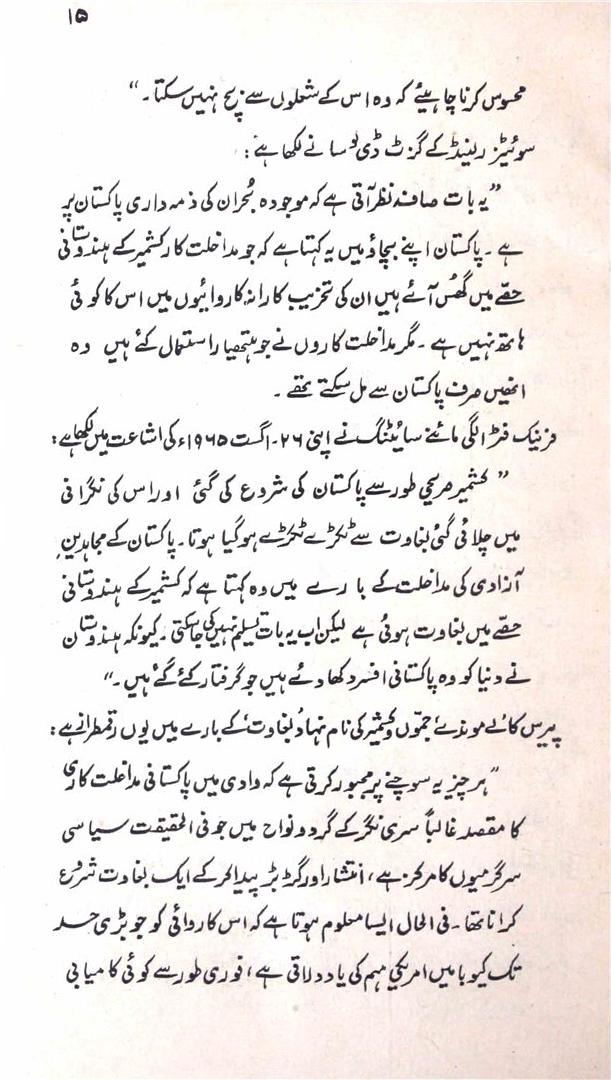 ۱۵
محسوس کرنا چاہیئے کہ وہ اس کے شعلوں سے بچ نہیں سکتا۔"
سوئیٹزر لینڈ کے گزٹ ڈی لوسانے لکھا ہے:
"یہ بات صاف نظر آتی ہے کہ موجودہ بُحران کی ذمہ داری پاکستان پر
ہے۔ پاکستان اپنے بچاؤ میں یہ کہتا ہے کہ جو مداخلت کار کشمیر کے ہندوستانی
حصّے میں گھُس آئے ہیں ان کی تخریب کارانہ کاروائیوں میں اس کا کوئی
ہاتھ نہیں ہے۔ مگر مداخلت کاروں نے جو ہتھیار استعمال کئے ہیں وہ
انھیں صرف پاکستان سے مل سکتے تھے۔
فرینک فرڑالگی مائنے سائیٹنگ نے اپنی ۲۶۔ اگست ۱۹۶۵ء کی اشاعت میں لکھا ہے:
"کشمیر صریحی طور سے پاکستان کی شروع کی گئی اور اس کی نگرانی
میں چلائی گئی بغاوت سے ٹکڑے ٹکڑے ہو گیا ہوتا۔ پاکستان کے مجاہدینِ
آزادی کی مداخلت کے بارے میں وہ کہتا ہے کہ کشمیر کے ہندوستانی
حصّے میں بغاوت ہوئی ہے لیکن اب یہ بات تسلیم نہیں کی جا سکتی۔ کیونکہ ہندوستان
نے دنیا کو وہ پاکستانی افسر دکھا دئے ہیں جو گرفتار کئے گئے ہیں۔"
پیرس کا لے موندے جموّں و کشمیر کی نام نہاد 'بغاوت' کے بارے میں یوں رقمطراز ہے:
"ہر چیز یہ سوچنے پر مجبور کرتی ہے کہ وادی میں پاکستانی مداخلت کاری
کا مقصد غالباً سری نگر کے گرد و نواح میں جو فی الحقیقت سیاسی
سرگرمیوں کا مرکز ہے، انتشار اور گڑبڑ پیدا کر کے ایک بغاوت شروع
کرانا تھا۔ فی الحال ایسا معلوم ہوتا ہے کہ اس کاروائی کو جو بڑی حد
تک کیوبا میں امریکی مہم کی یاد دلاتی ہے، فوری طور سے کوئی کامیابی